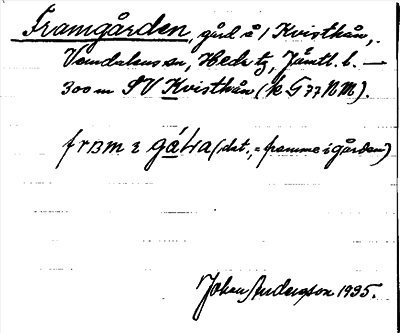 Framgården, gård å 1 Kvisthån,
Vemdalens sn, Heds tg, Jämtl. l. —
300 m SV Kvisthån (k G 77 N M).
fram i gáɫɹa (dat., = framme i gården)
Johan Anderson 1935.